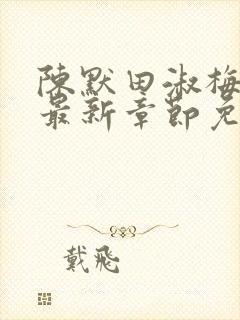 陳默田淑梅
最新章節免
戴飛